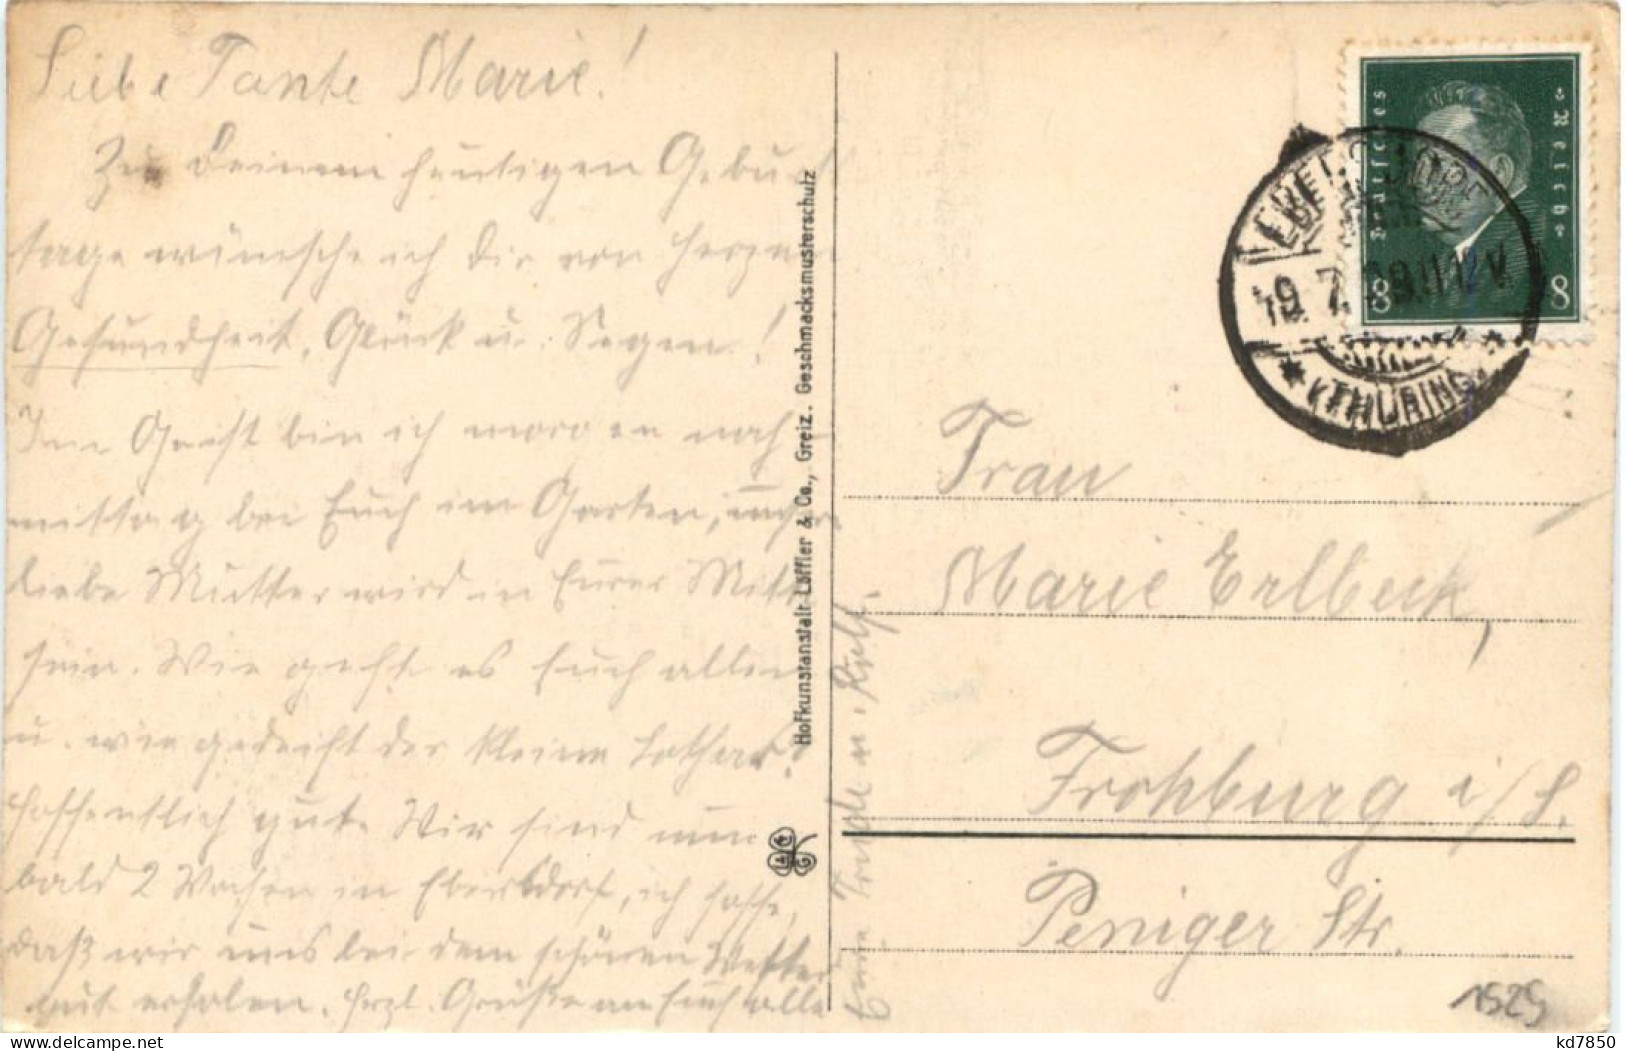 Liebe Tante Marie!
Zu Deinem heutigen Gebu
tage wünsche ich Dir von Herzen
Gesundheit, Glück u. Segen!
Im Geist bin ich morgen nach-
mittag bei Euch im Garten, unsere
liebe Mutter wird in Eurer Mitte
sein. Wie geht es Euch allen
u. wie gedeiht der kleine Lothar?
Hoffentlich gut. Wir sind nun
bald 2 Wochen in Ebersdorf, ich hoffe,
daß wir uns bei dem schönen Wetter
gut erholen. Herzl. Grüße an Euch alle
Eure Trude u.
Hofkunstanstalt Löffler & Co., Greiz. Geschmacksmusterschutz
Deutsches
Reich
8
8
EBERSDORF
19.7.29.11-12V
(THÜRING.)
Frau
Marie Erlbeck,
Frohburg i/S.
Peniger Str.
1529
delcampe.net
kd7850